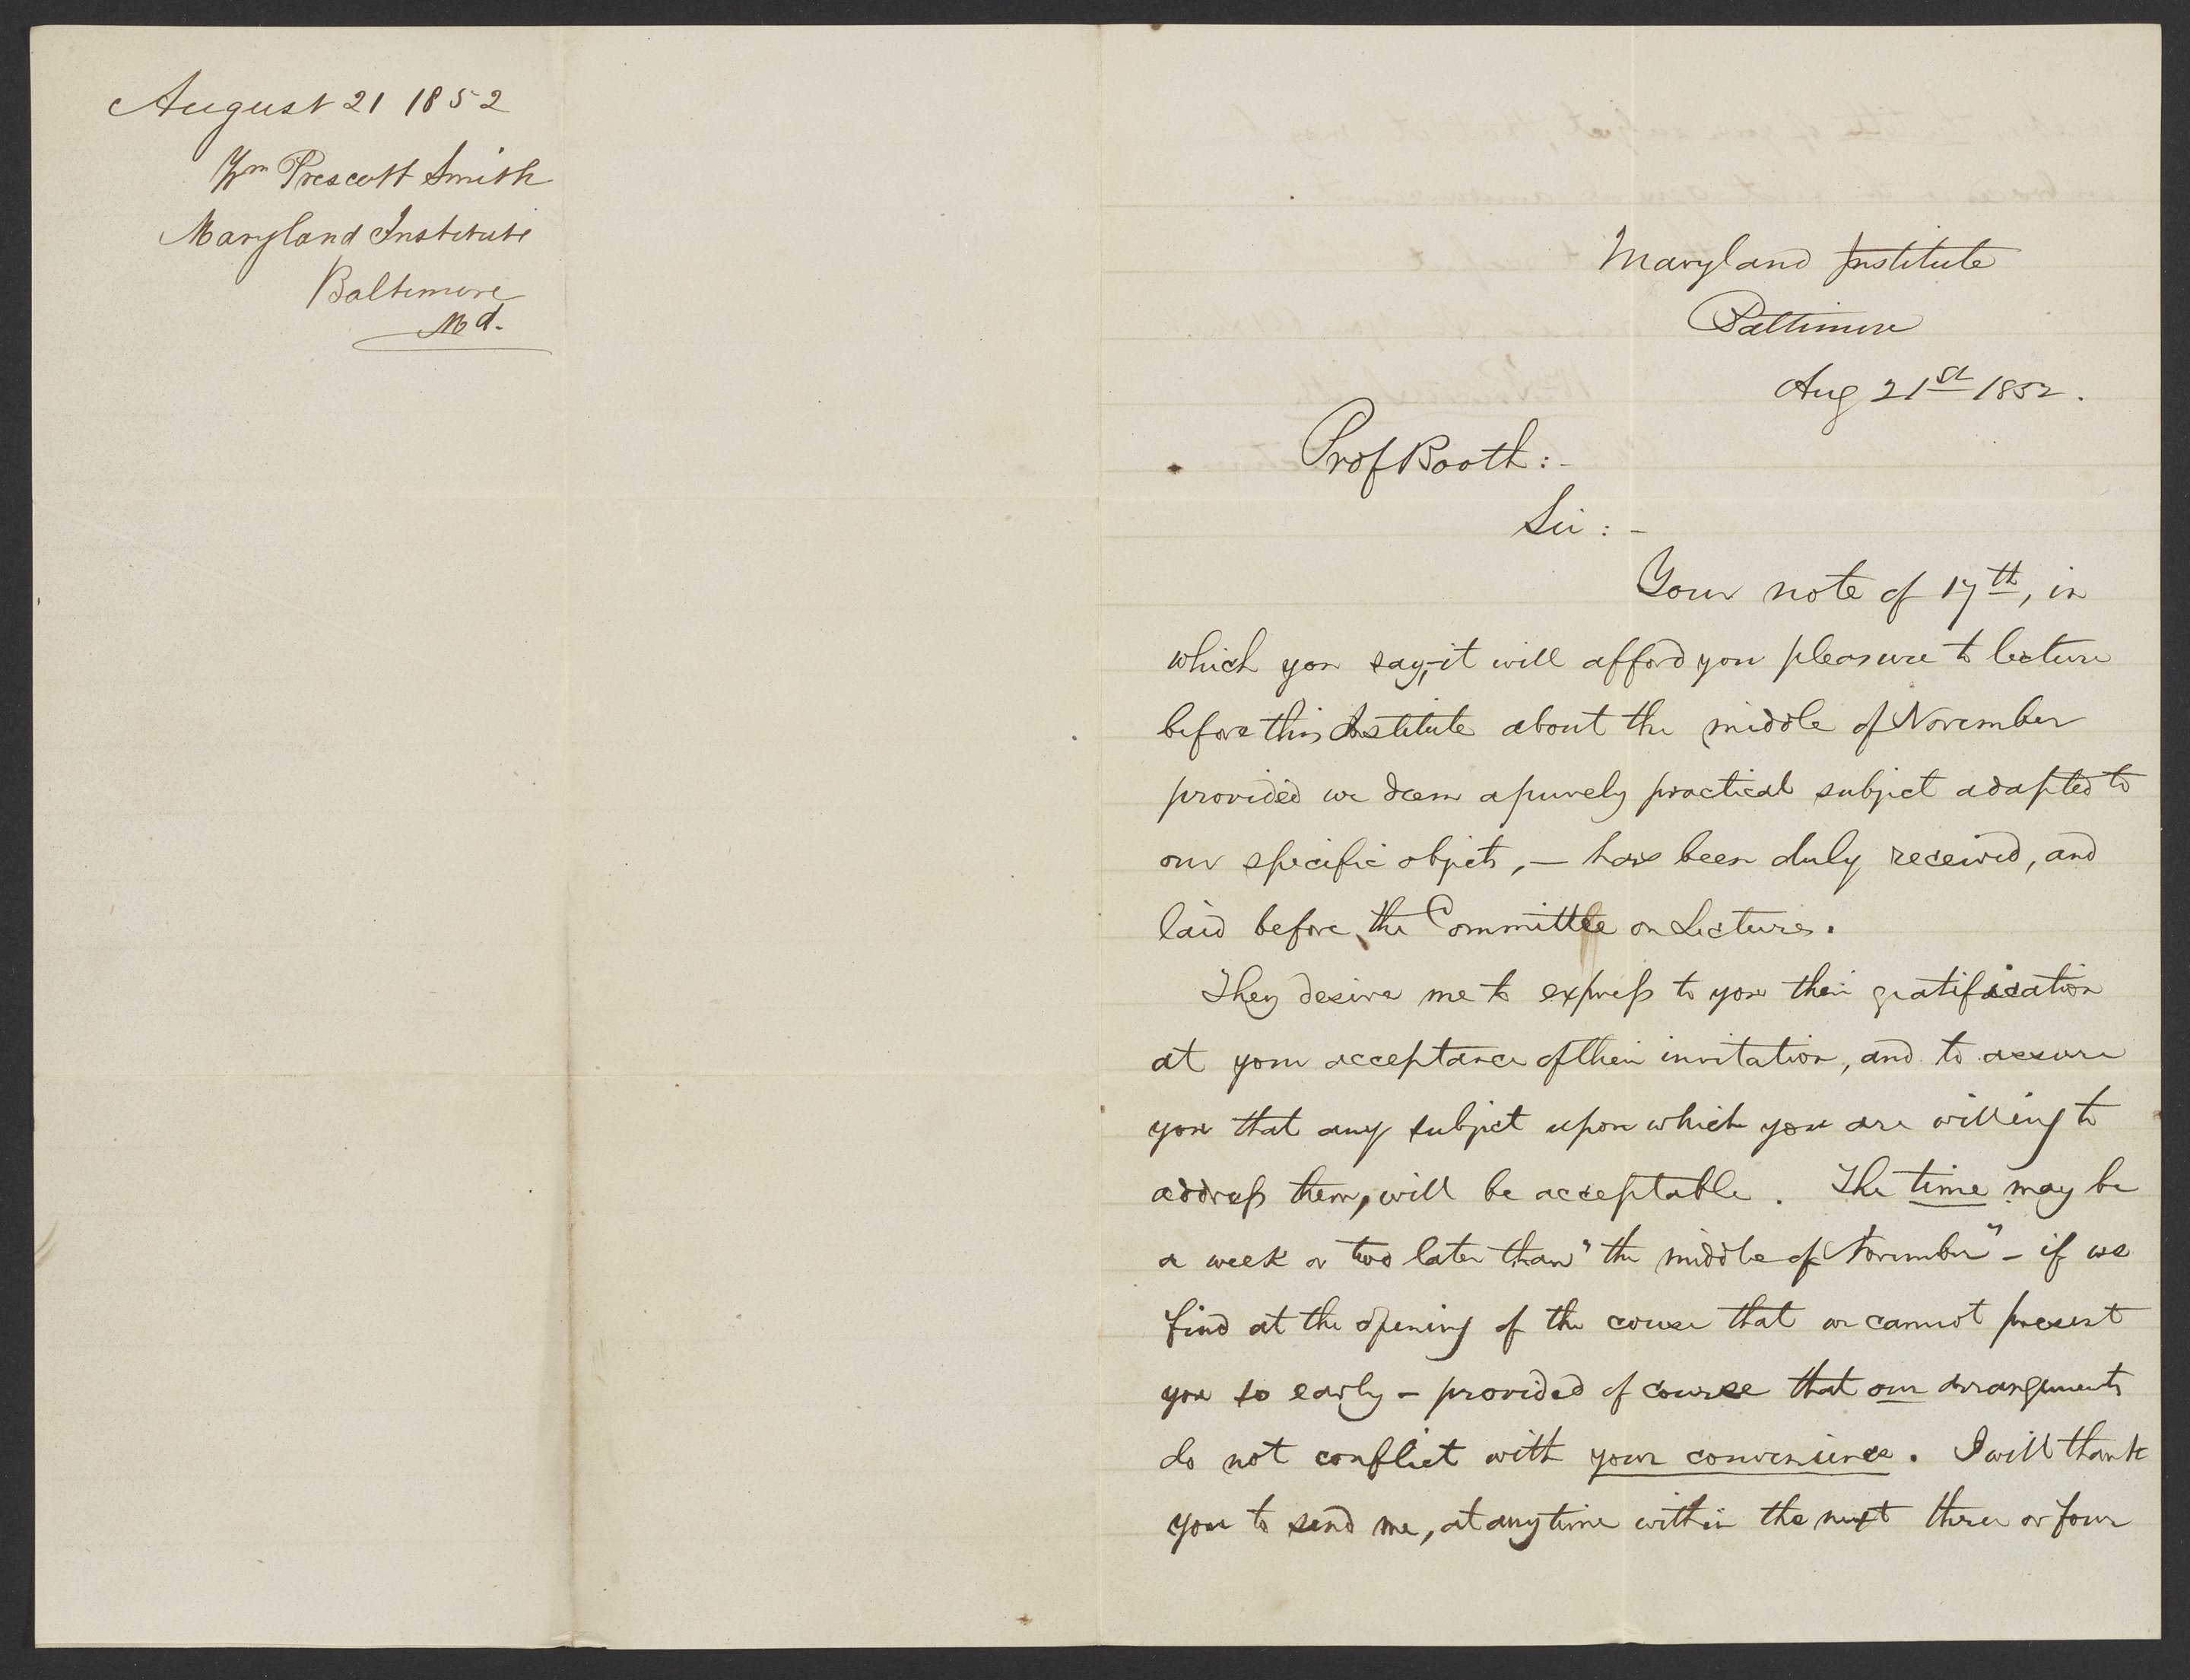 August 21 1852
Wm Prescott Smith
Maryland Institute
Baltimore
Md.
Maryland Institute
Baltimore
Aug 21st 1852.
Prof Booth:-
Sir:-
Your note of 17th, in
which you say, it will afford you pleasure to lecture
before this Institute about the middle of November
provided we deem a purely practical subject adapted to
our specific objects, — has been duly received, and
laid before the Committee on Lectures.
They desire me to express to you their gratification
at your acceptance of their invitation, and to assure
you that any subject upon which you are willing to
address them, will be acceptable. The time may be
a week or two later than "the middle of November" - if we
find at the opening of the course that we cannot present
you so early - provided of course that our arrangements
do not conflict with your convenience. I will thank
you to send me, at any time within the next three or four